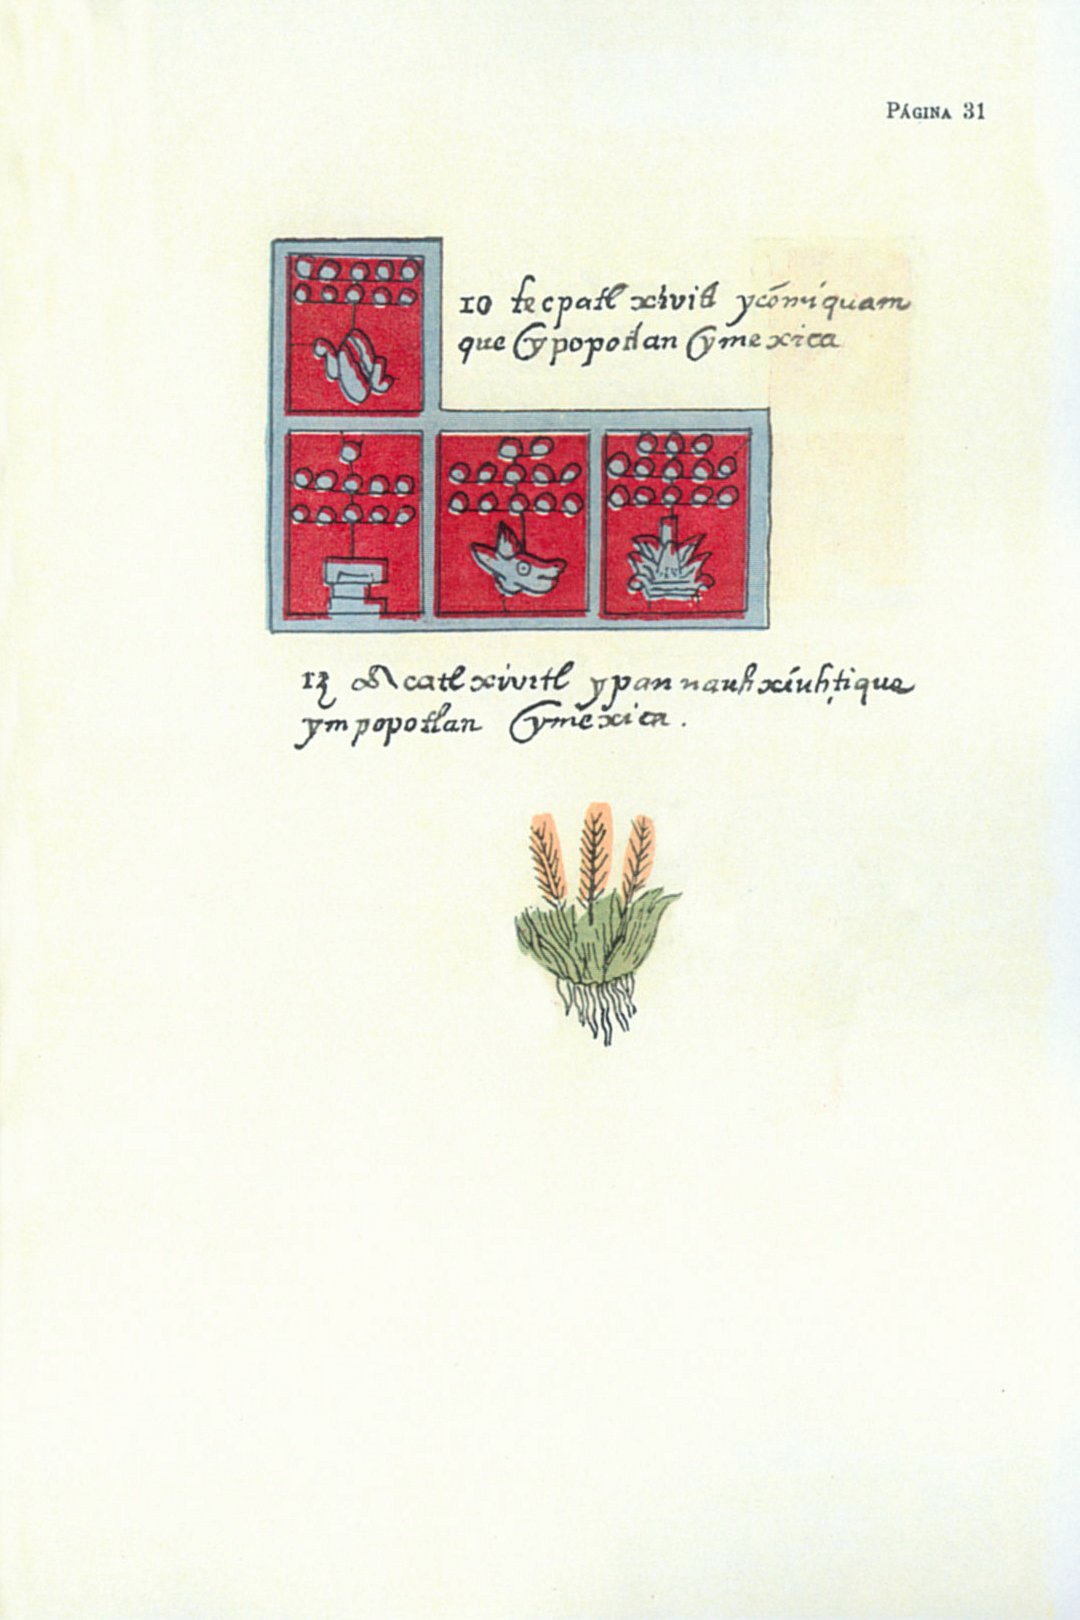 PÁGINA 31
10 tecpatl xivitl yc ōmiquam
que y popotlan y mexica
13 Acatl xivitl ypan nauhxiuhtique
ym popotlan y mexica .